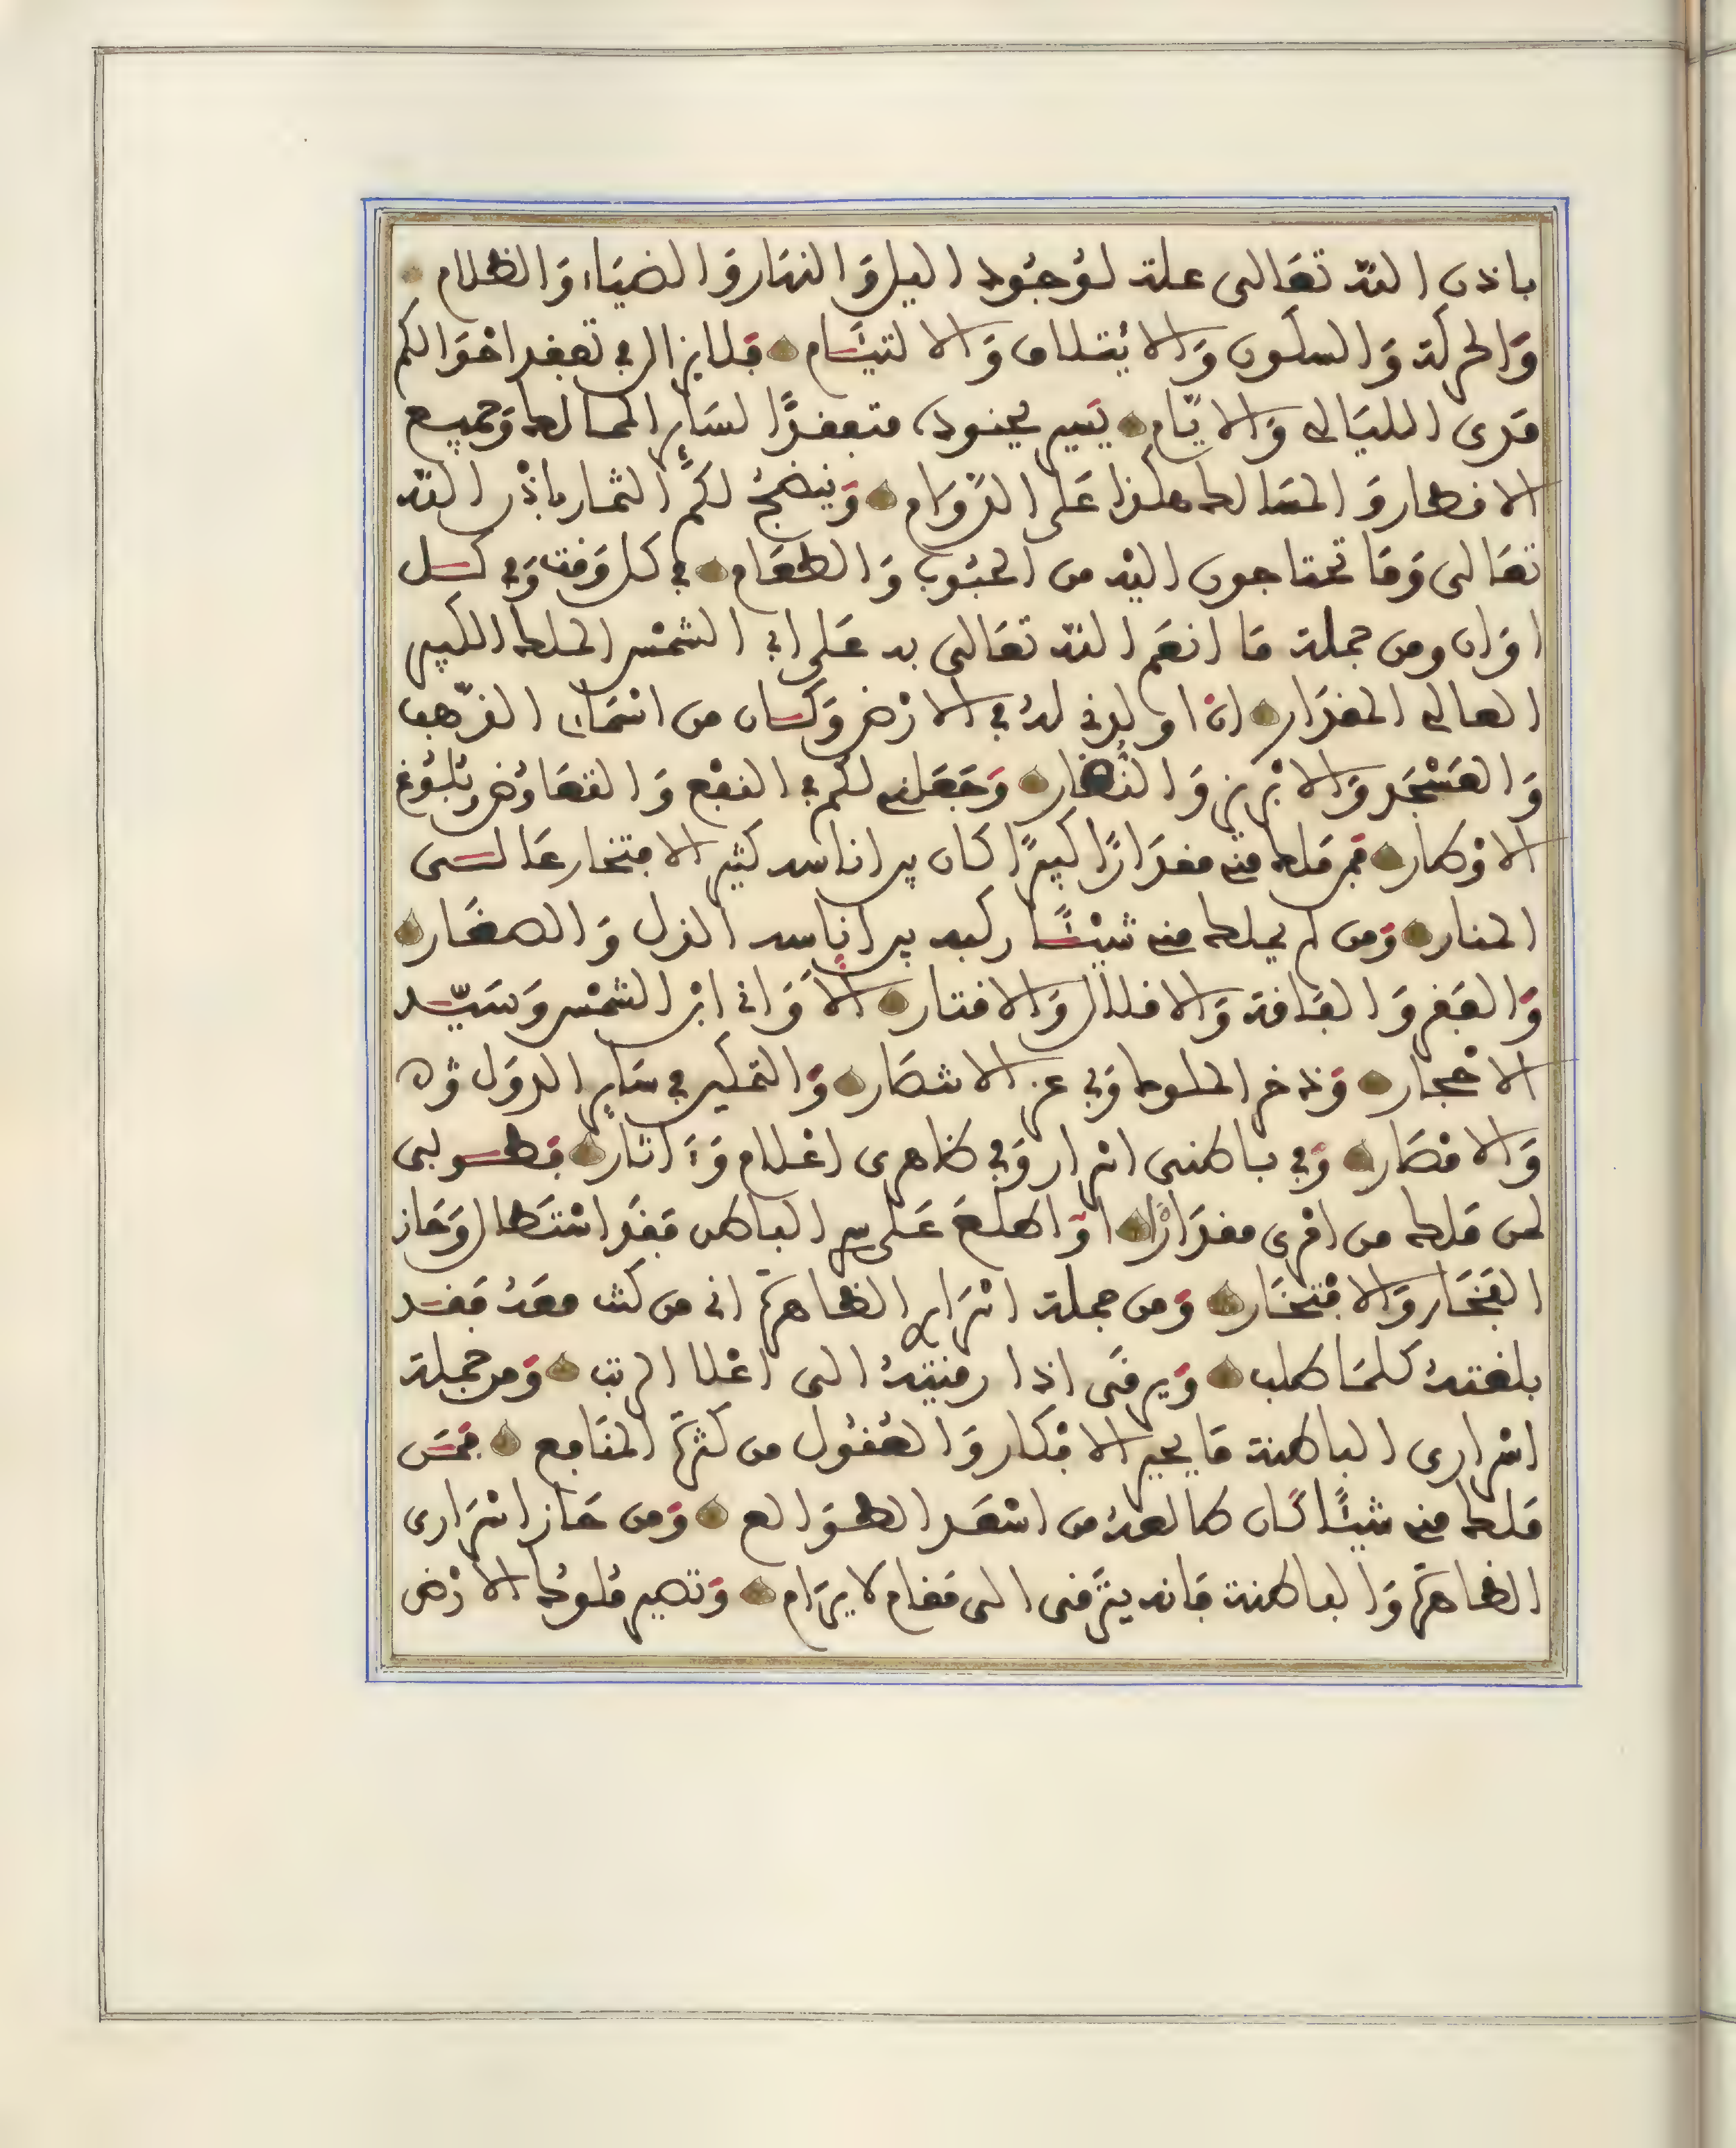 باذن الله تعَالى علة لوُجُود اليل وَالنهَار وَالضيَاء وَالظلام
وَالحركة وَالسكون وَالايْتلاف وَالالتيَام فلا يزال في تفقد احْوَالكم
مَدى الليَالي وَالايّام يَسير بجنوده متفقدًا لسَاير الممالك وَجميع
الاقطار وَالمسَالك هكذا عَلى الدّوَام وَينضجُ لكمُ الثمار باذْن الله
تعَالى وَمَا تحتاجون اليْه من الحبُوب وَالطعَام في كل وَقت وَفي كل
اوَان ومن جملة مَا انعَم الله تعَالى به عَلي ان الشمْس الملك الكبير
العالي المقدَار انا ولدي لهُ في الارْض وَكان من اسْمَاي الذّهب
وَالعَسْجَد وَالابْريز وَالنُّضار وَجَعَلني لكم في النفْع وَالتعَاوُض وبُلُوغ
الاوْطار فمن مَلك مني مقدَارًا كبيرًا كان بين اناسه كثير الافتخار عَالي
المنار وَمن لم يملك مني شيْئًا ركبه بين اناسه الذل وَالصغَار
وَالفَقر وَالفَاقة وَالاقلال وَالاقتار الا وَاني ابْن الشمْس وَسَيّد
الاحْجار وَذخر الملوك وَبي عز الانصَار وَالتمكين في سَاير الدوَل وَه
وَالامْصَار وَفي باطني اسْرار وَفي ظاهري اعْلام وَءَاثار فطوبى
لمن مَلك من امْري مقدَارًا اوَ اطلعَ عَلى سر الباطن فقَد اسْتطَال وَحَاز
الفَخَار وَالافْتخَار وَمن جملة اسْرَاري الظاهرَة اني من كنت معَهُ فقَد
بلغتهُ كلمَا طلب وَيرقَى اذا رقيتهُ الى اعْلا الرتب وَمن جملة
اسْراري الباطنة مَا يحير الافْكار وَالعُقُول من كثرَة المنَافع فمَن
مَلك مني شيئًا كان طالعهُ من اسْعَد الطوَالع وَمن حَاز اسْرَاري
الظاهرَة وَالباطنة فانه يترَقى الى مَقام لا يرَام وَتصير مُلوكُ الارْض